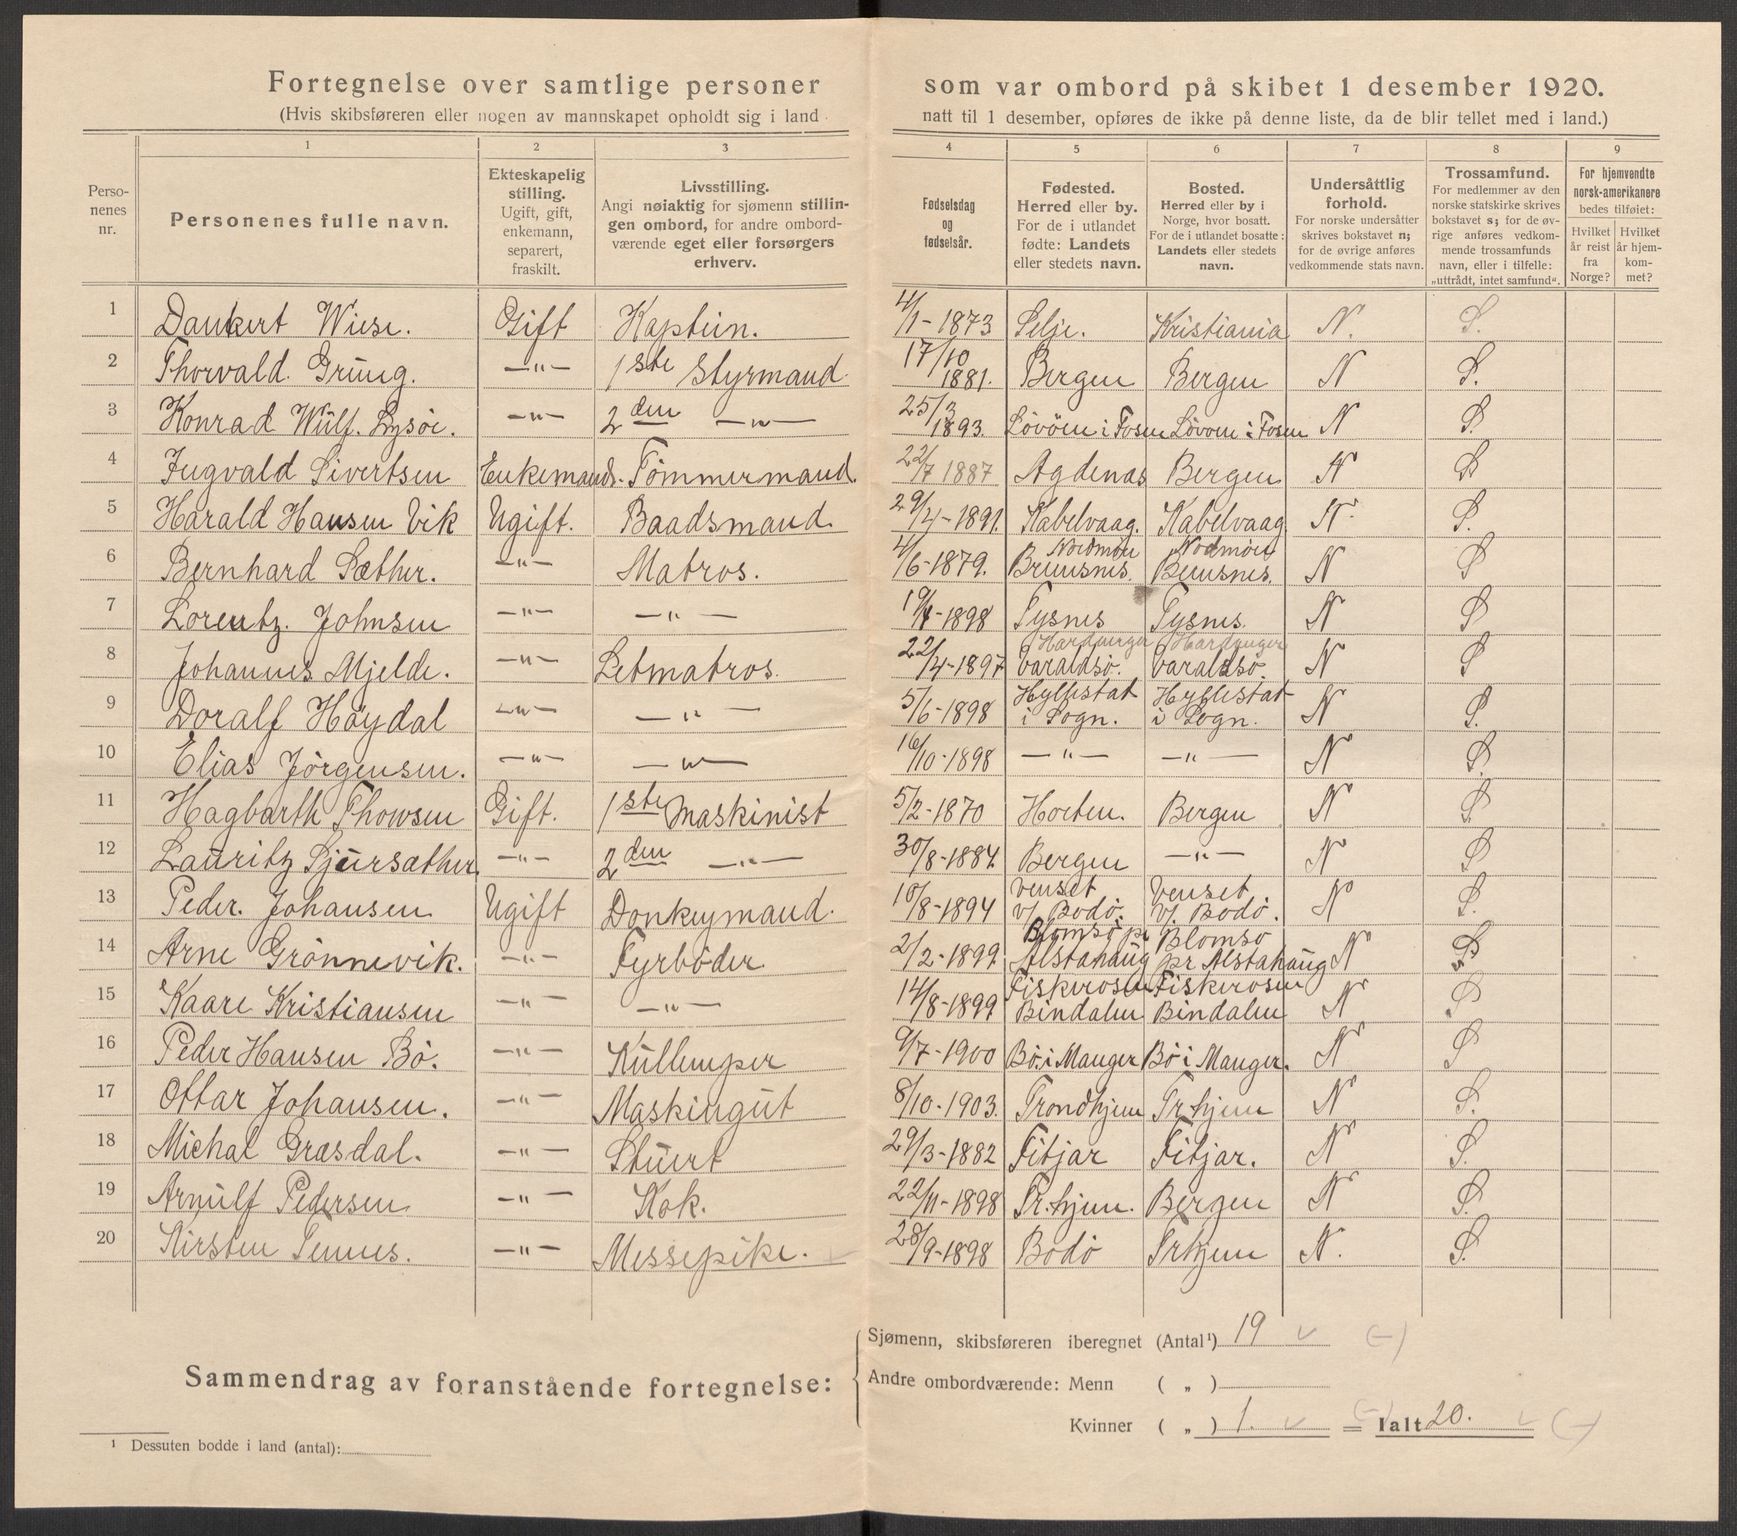 Fortegnelse over samtlige personer som var ombord på skibet 1 desember 1920.
(Hvis skibsføreren eller nogen av mannskapet opholdt sig i land natt til 1 desember, opføres de ikke på denne liste, da de blir tellet med i land.)
1 2 3 4 5 6 7 8 9
Perso-
nenes
nr.
Personenes fulle navn.
Ekteskapelig
stilling.
Ugift, gift,
enkemann,
separert,
fraskilt.
Livsstilling.
Angi nøiaktig for sjømenn stillin-
gen ombord, for andre ombord-
værende eget eller forsørgers
erhverv.
Fødselsdag
og
fødselsår.
Fødested.
Herred eller by.
For de i utlandet
fødte: Landets
eller stedets navn.
Bosted.
Herred eller by i
Norge, hvor bosatt.
For de i utlandet bosatte:
Landets eller stedets
navn.
Undersåttlig
forhold.
For norske undersåtter
skrives bokstavet n;
for de øvrige anføres
vedkommende stats navn.
Trossamfund.
For medlemmer av den
norske statskirke skrives
bokstavet s; for de øv-
rige anføres vedkom-
mende trossamfunds
navn, eller i tilfelle:
„uttrådt, intet samfund".
For hjemvendte
norsk-amerikanere
bedes tilføiet:
Hvilket
år reist
fra
Norge?
Hvilket
år hjem-
kom-
met?
1 Dankert Wiese. Gift Kaptein. 4/1-1873 Selje. Kristiania N. S.
2 Thorvald Grung. —"— 1ste Styrmand 17/10 1881. Bergen Bergen N S.
3 Konrad Wülf. Lysöe. —"— 2den —"— 25/3 1893. Lövöen i Fosen Lövöen i Fosen N S.
4 Ingvald Sivertsen Enkemands. Tömmermand. 22/7 1887 Agdenes Bergen N S
5 Harald Hansen Vik Ugift. Baadsmand. 29/4-1891. Kabelvaag. Kabelvaag N. S.
6 Bernhard Sæther. —"— Matros. 4/6-1879. Nordmöre Bremsnes. Nodmöre Bremsnes. N S
7 Lorentz. Johnsen —"— —"— 19/4-1898 Tysnes Tysnes. N S
8 Johannes Mjelde. —"— Letmatros. 22/4-1897 Hardanger Varaldsö. Hardanger Varaldsö. N S
9 Doralf Höydal —"— —"— 5/6-1898 Hyllestat i Sogn. Hyllestat i Sogn. N S.
10 Elias Jörgensen. —"— —"— 16/10-1898 —"— —"— N S.
11 Hagbarth Thowsen Gift. 1ste Maskinist 5/2-1870 Horten. Bergen N S
12 Lauritz Sjürsæther. —"— 2den —"— 30/8-1884. Bergen —"— N S
13 Peder. Johansen Ugift Donkeymand. 10/8-1894 Venset v/ Bodö. Venset v/ Bodö. N S.
14 Arne Grönnevik. —"— Fyrböder 2/2-1899. Blomsö pr Alstahaug Blomsö pr Alstahaug N S
15 Kaare Kristiansen —"— —"— 14/8-1899 Fiskerosen Bindalen Fiskerosen Bindalen N S
16 Peder Hansen Bö. —"— Küllemper 9/7-1900 Bö i Manger Bö i Manger. N S
17 Ottar Johansen. —"— Maskingüt 8/10-1903. Trondhjem Tr.hjem N S.
18 Michal Græsdal. —"— Stüert 29/3-1882 Fitjar Fitjar. N S.
19 Arnülf Pedersen —"— Kok. 22/11-1898 Tr.hjem. Bergen N S.
20 Kirsten Tennes. —"— Messepike. 28/9-1898 Bodö Trhjem N. S.
Sammendrag av foranstående fortegnelse:
Sjømenn, skibsføreren iberegnet (Antal¹) 19 (—)
Andre ombordværende: Menn ( „ )
Kvinner ( „ ) 1. (—) = Ialt 20. (—)
¹ Dessuten bodde i land (antal):